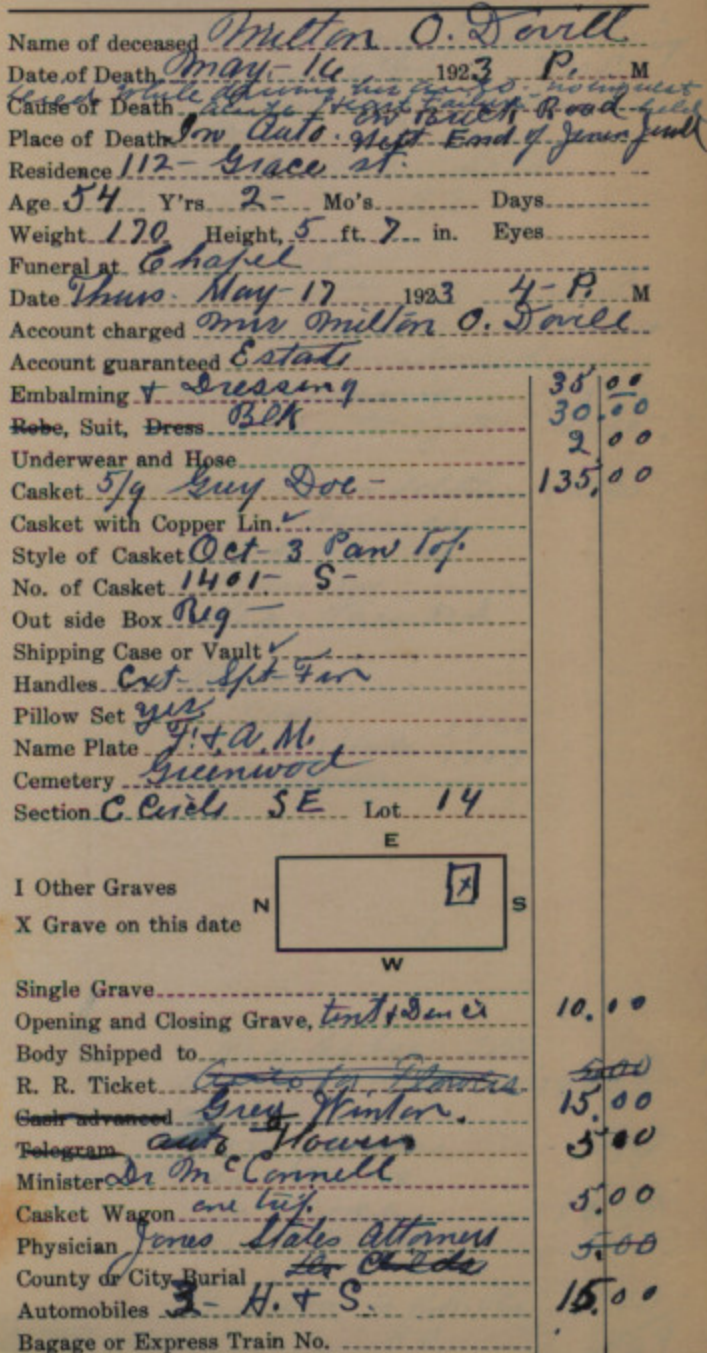 Name of deceased Milton O. Dovill
Date of Death May - 16 1923 P. M
while driving his auto - no inquest held
Cause of Death acute Heart failure on Brick Road
Place of Death In Auto. West End of
Residence 112 - Grace st.
Age 54 Y'rs 2 - Mo's Days
Weight 170 Height, 5 ft. 7 in. Eyes
Funeral at Chapel
Date Thurs. May - 17 1923 4 - P. M
Account charged Mrs Milton O. Dovill
Account guaranteed Estate
Embalming & Dressing 35 00
Robe, Suit, Dress Blk 30.00
Underwear and Hose 2 00
Casket 5/9 Grey Doe - 135,00
Casket with Copper Lin. ✓
Style of Casket Oct - 3 Pan Top.
No. of Casket 1401 - S -
Out side Box Reg -
Shipping Case or Vault ✓
Handles Ext - Spt - Fin
Pillow Set yes
Name Plate F. & A. M.
Cemetery Greenwood
Section C Circle SE Lot 14
E
I Other Graves
N X S
X Grave on this date
W
Single Grave
Opening and Closing Grave, tent & 10.00
Body Shipped to
R. R. Ticket Auto for Flowers 5.00
Cash advanced Grey Winton. 15.00
Telegram auto Flowers 5 00
Minister Dr McConnell
Casket Wagon one trip. 5.00
Physician Jones States Attorneys 5.00
County or City Burial Dr Childs
Automobiles 3 - H. & S. 15.00
Bagage or Express Train No.